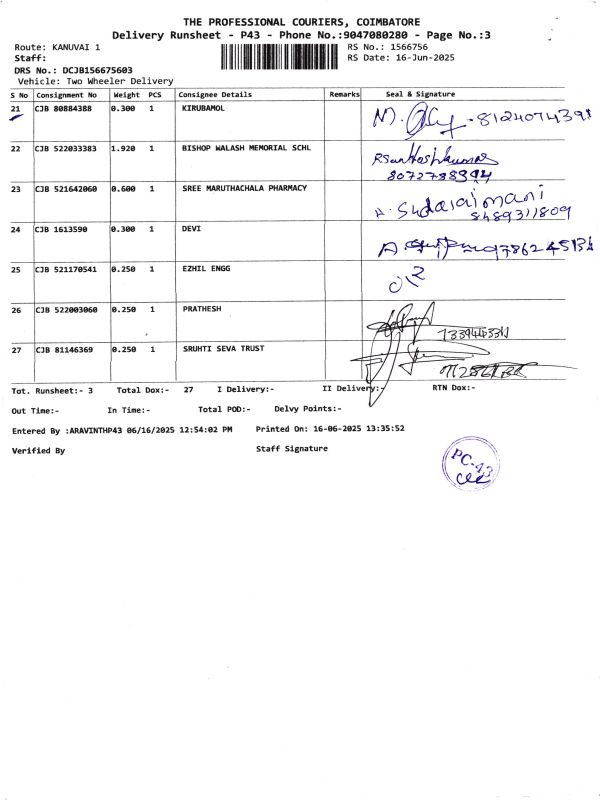 THE PROFESSIONAL COURIERS, COIMBATORE
Delivery Runsheet - P43 - Phone No.:9047080280 - Page No.:3
Route: KANUVAI 1 RS No.: 1566756
Staff: RS Date: 16-Jun-2025
DRS No.: DCJB156675603
Vehicle: Two Wheeler Delivery
S No Consignment No Weight PCS Consignee Details Remarks Seal & Signature
21 CJB 80884388 0.300 1 KIRUBAMOL
22 CJB 522033383 1.920 1 BISHOP WALASH MEMORIAL SCHL
8072788394
23 CJB 521642060 0.600 1 SREE MARUTHACHALA PHARMACY
8489311809
24 CJB 1613590 0.300 1 DEVI
25 CJB 521170541 0.250 1 EZHIL ENGG
26 CJB 522003060 0.250 1 PRATHESH
27 CJB 81146369 0.250 1 SRUHTI SEVA TRUST
Tot. Runsheet:- 3 Total Dox:- 27 I Delivery:- II Delivery:- RTN Dox:-
Out Time:- In Time:- Total POD:- Delvy Points:-
Entered By :ARAVINTHP43 06/16/2025 12:54:02 PM Printed On: 16-06-2025 13:35:52
Verified By Staff Signature
PC-43